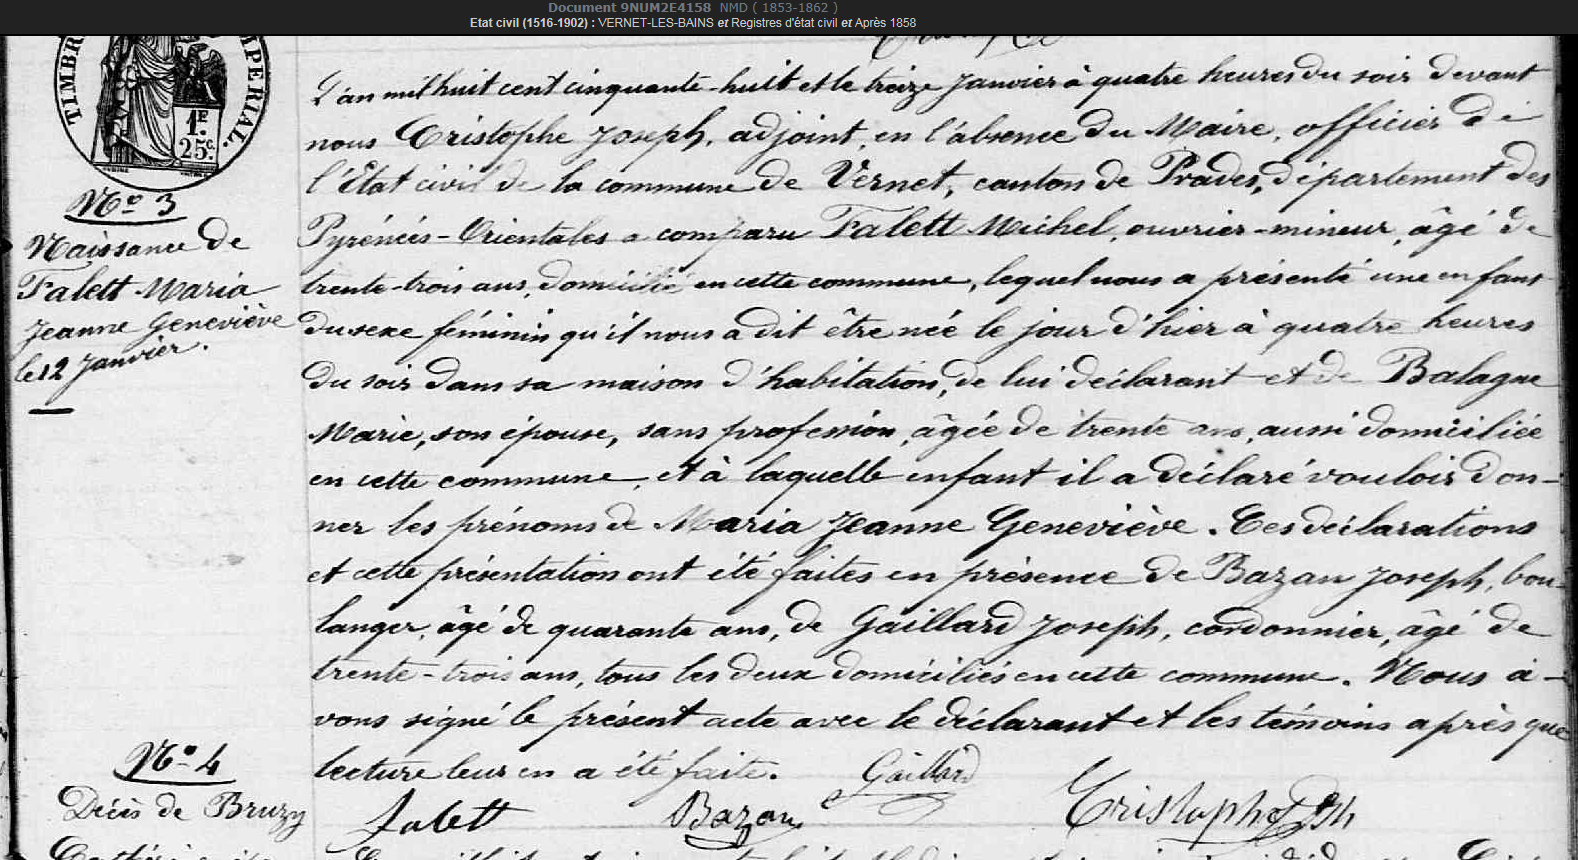 Document 9NUM2E4158 NMD ( 1853-1862 )
Etat civil (1516-1902) : VERNET-LES-BAINS et Registres d'état civil et Après 1858
TIMBRE IMPERIAL.
1.F
25c.
L'an mil huit cent cinquante-huit et le treize Janvier à quatre heures du soir devant
nous Cristophe Joseph, adjoint, en l'absence du Maire, officier de
l'Etat civil de la commune de Vernet, canton de Prades, département des
Pyrénées-Orientales a comparu Falett Michel, ouvrier-mineur, âgé de
trente-trois ans, domicilié en cette commune, lequel nous a présenté une enfant
du sexe féminin qu'il nous a dit être née le jour d'hier à quatre heures
du soir dans sa maison d'habitation, de lui déclarant et de Balague
Marie, son épouse, sans profession, âgée de trente ans, aussi domiciliée
en cette commune, et à laquelle enfant il a déclaré vouloir don-
ner les prénoms de Maria Jeanne Geneviève. Ces déclarations
et cette présentation ont été faites en présence de Bazan Joseph, bou-
langer, âgé de quarante ans, de Gaillard Joseph, cordonnier, âgé de
trente-trois ans, tous les deux domiciliés en cette commune. Nous a-
vons signé le présent acte avec le déclarant et les témoins après que
lecture leur en a été faite. Gaillard
Falett Bazan Cristophe Jph
No 3
Naissance de
Falett Maria
Jeanne Geneviève
le 12 Janvier.
No 4
Décès de Bruzy